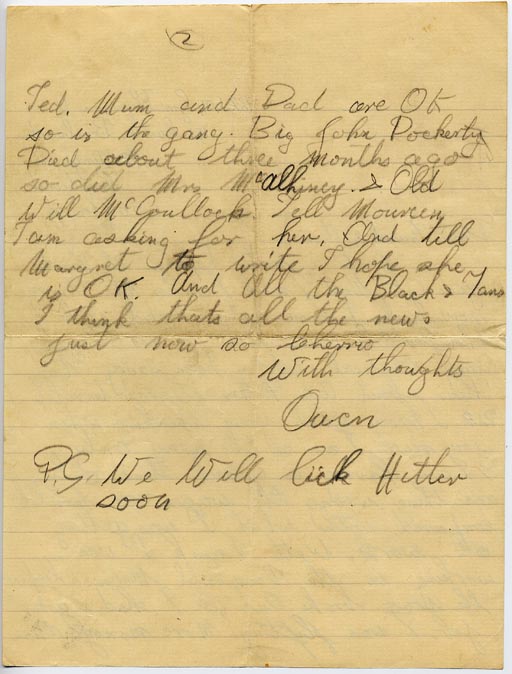 2
Ted. Mum and Dad are OK
so is the gang. Big John Dockerty
Died about three months ago
so did Mrs McAlhiney. & Old
Will McCoullock. Tell Moureen
I am asking for her, And tell
Margret to write I hope she
is OK. And All the Black & Tans
I think thats all the news
just now so Cherrio
With thoughts
Owen
P.S. We Will lick Hitler
soon